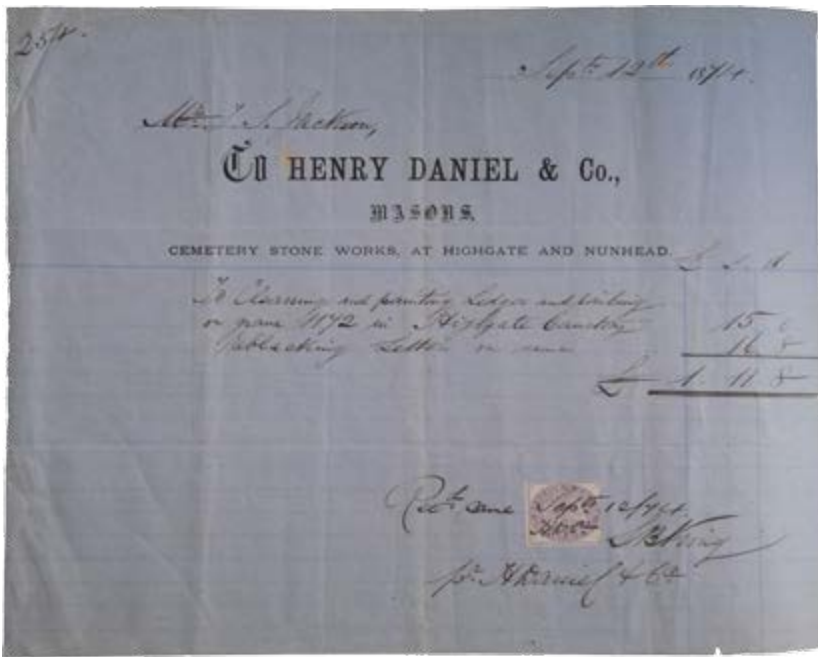 Septr. 12th 1874.
Mr. J. S. Jackson,
To HENRY DANIEL & Co.,
MASONS,
CEMETERY STONE WORKS, AT HIGHGATE AND NUNHEAD.
£ s. d
To Cleaning and painting Ledger and
on grave in Highgate Cemetery
Reblacking Letters on same
15
16 8
£ 1. 11 8
Recd. same Septr. 12/74
S B King
pr. H Daniel & Co